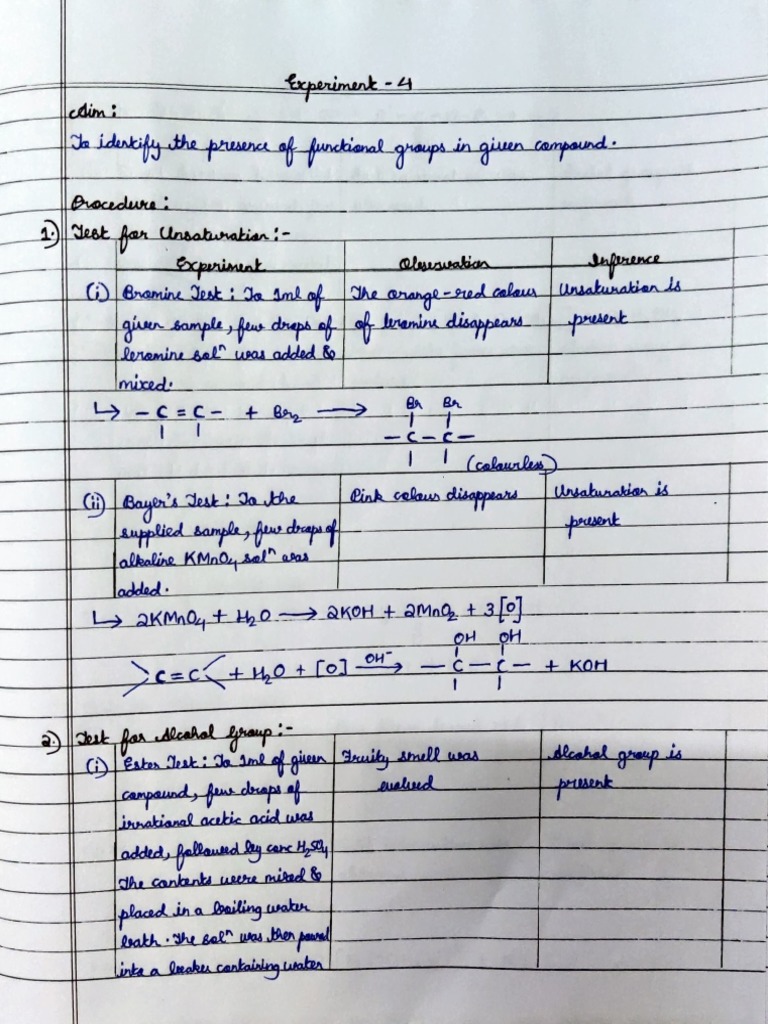 Experiment - 4
Aim :
To identify the presence of functional groups in given compound.
Procedure :
1.) Test for Unsaturation :-
Experiment Observation Inference
(i) Bromine Test : To 1ml of The orange-red colour Unsaturation is
given sample, few drops of of bromine disappears present
bromine solⁿ was added &
mixed.
↳ - C = C - + Br₂ ⟶ Br Br
- C - C -
(colourless)
(ii) Bayer's Test : To the Pink colour disappears Unsaturation is
supplied sample, few drops of present
alkaline KMnO₄ solⁿ was
added.
↳ 2KMnO₄ + H₂O ⟶ 2KOH + 2MnO₂ + 3[O]
OH OH
>C=C< + H₂O + [O] OH⁻ ⟶ - C - C - + KOH
2.) Test for Alcohol Group :-
(i) Ester Test : To 1ml of given Fruity smell was Alcohol group is
compound, few drops of evolved present
irrational acetic acid was
added, followed by conc H₂SO₄
The contents were mixed &
placed in a boiling water
bath. The solⁿ was then poured
into a beaker containing water